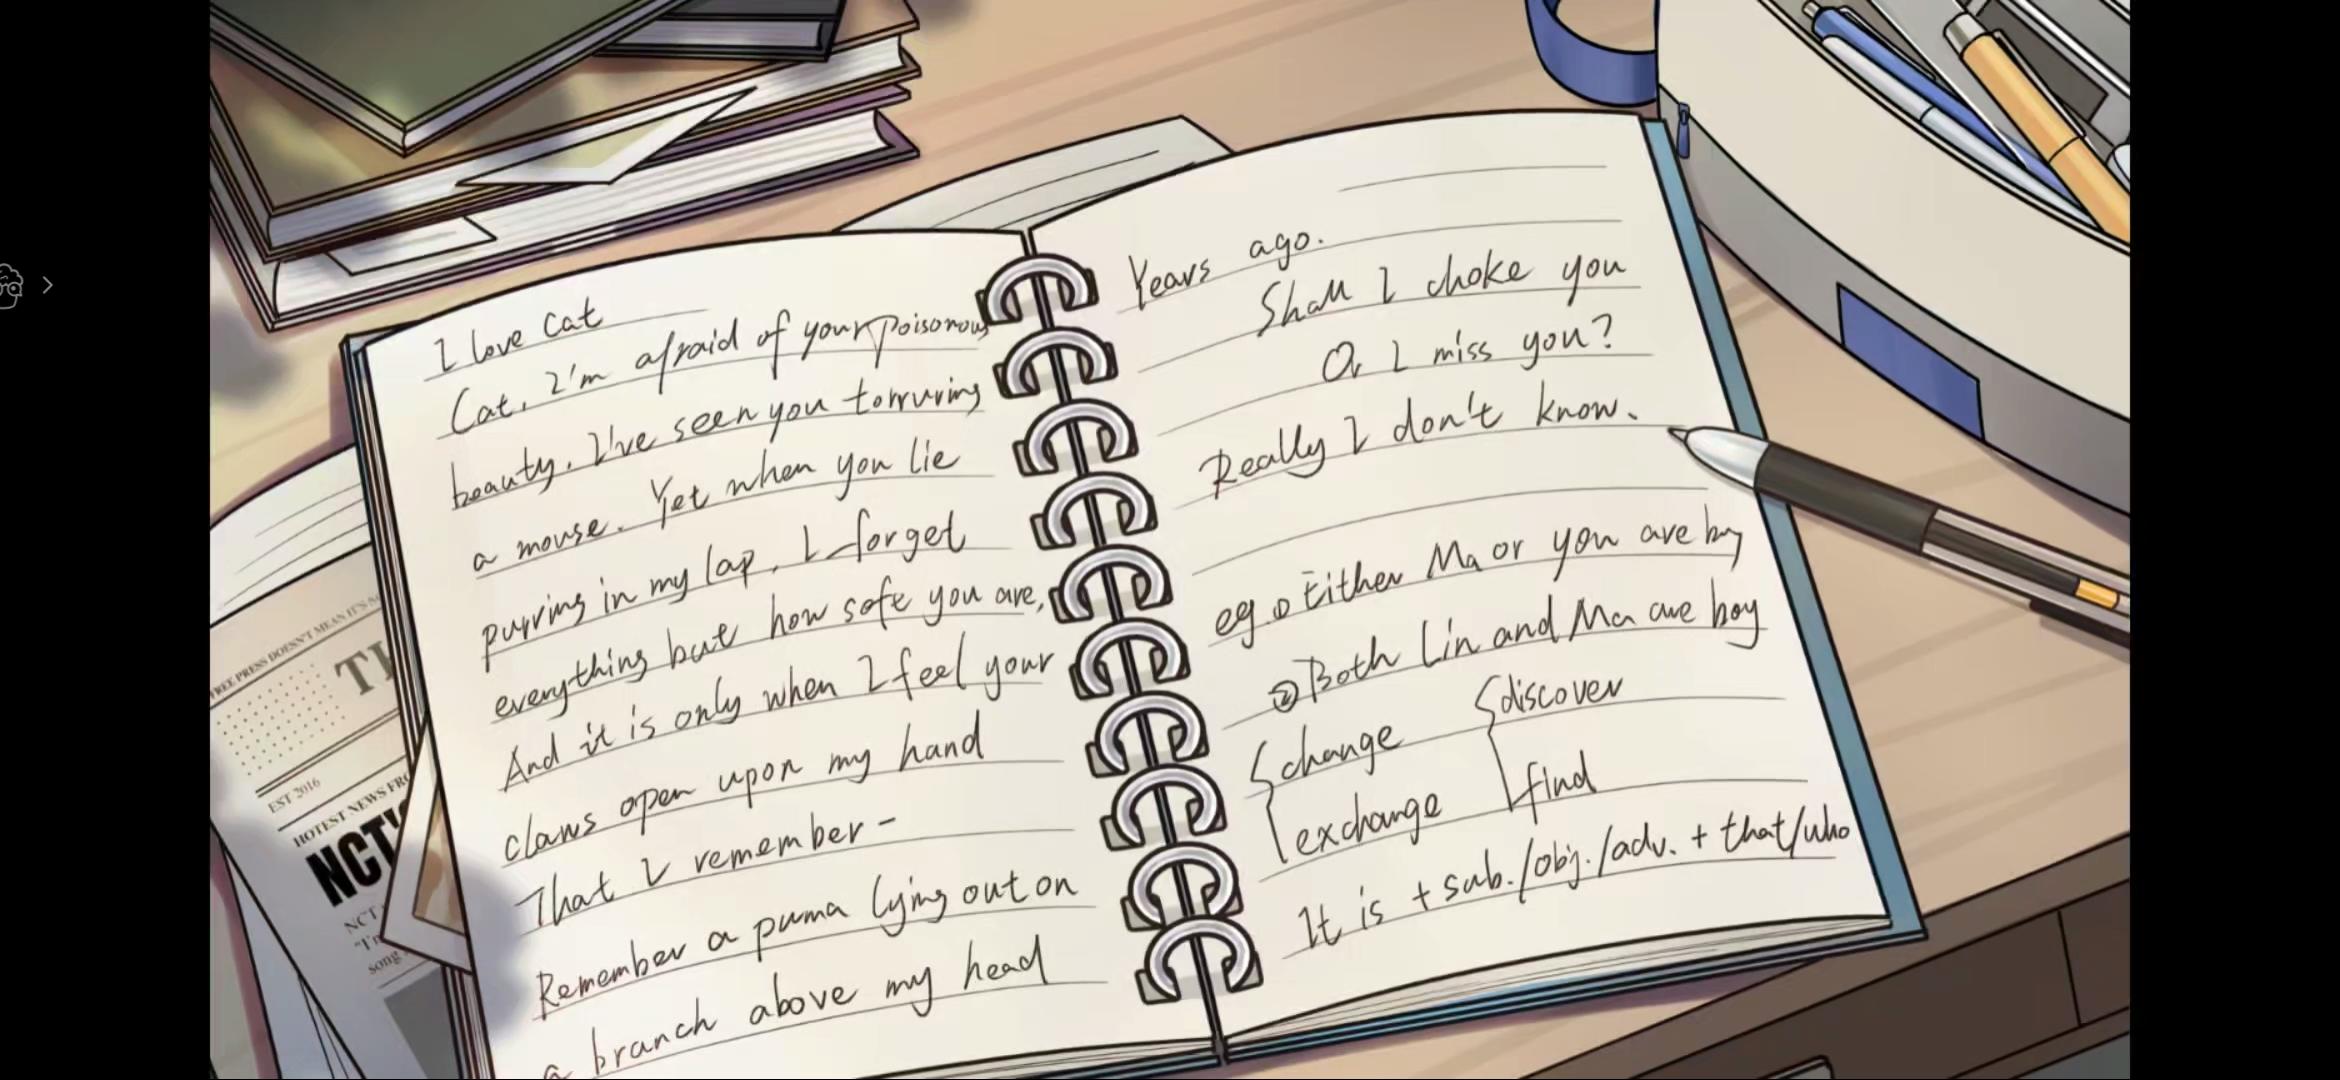 I love cat
Cat, I'm afraid of your poisonous
beauty. I've seen you torruring
a mouse. Yet when you lie
purring in my lap, I forget
everything but how safe you are,
And it is only when I feel your
claws open upon my hand
That I remember -
Remember a puma lying out on
a branch above my head
Years ago.
Shall I choke you
Or I miss you?
Really I don't know.
eg. ① Either Ma or you are boy
② Both Lin and Ma are boy
change
exchange
discover
find
It is + sub./obj./adv. + that/who
FREE PRESS DOESN'T MEAN IT'S
EST 2016
HOTEST NEWS FRO
NCT'
NCT
song